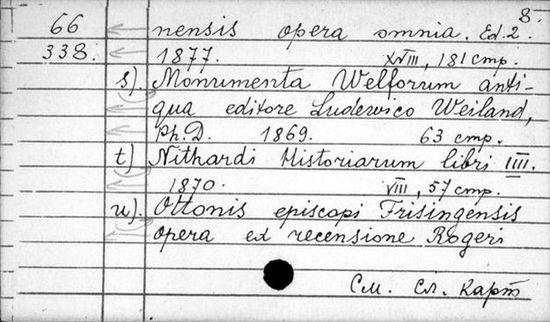 8.
66 nensis opera omnia. Ed. 2.
338. 1877. XVIII, 181 стр.
s). Monumenta Welforum anti-
qua editore Ludewico Weiland,
Ph. D. 1869. 63 стр.
t). Nithardi Historiarum libri IIII.
1870. VIII, 57 стр.
u). Ottonis episcopi Frisingensis
opera ex recensione Rogeri
См. сл. карт